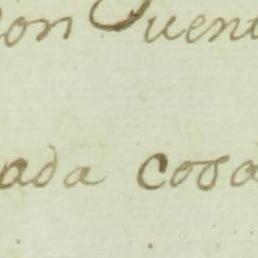 on Quent
ada cosa